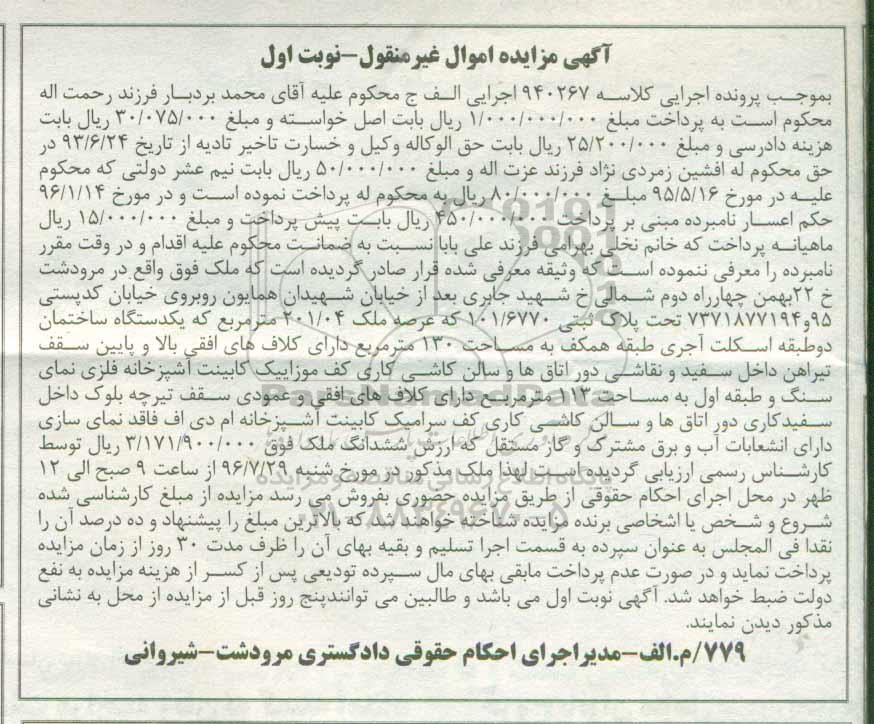 آگهی مزایده اموال غیرمنقول-نوبت اول
بموجب پرونده اجرایی کلاسه ۹۴۰۲۶۷ اجرایی الف ج محکوم علیه آقای محمد بردبار فرزند رحمت اله
محکوم است به پرداخت مبلغ ۱/۰۰۰/۰۰۰/۰۰۰ ریال بابت اصل خواسته و مبلغ ۳۰/۰۷۵/۰۰۰ ریال بابت
هزینه دادرسی و مبلغ ۲۵/۲۰۰/۰۰۰ ریال بابت حق الوکاله وکیل و خسارت تاخیر تادیه از تاریخ ۹۳/۶/۲۴ در
حق محکوم له افشین زمردی نژاد فرزند عزت اله و مبلغ ۵۰/۰۰۰/۰۰۰ ریال بابت نیم عشر دولتی که محکوم
علیه در مورخ ۹۵/۵/۱۶ مبلغ ۸۰/۰۰۰/۰۰۰ ریال به محکوم له پرداخت نموده است و در مورخ ۹۶/۱/۱۴
حکم اعسار نامبرده مبنی بر پرداخت ۴۵۰/۰۰۰/۰۰۰ ریال بابت پیش پرداخت و مبلغ ۱۵/۰۰۰/۰۰۰ ریال
ماهیانه پرداخت که خانم نخلی بهرامی فرزند علی بابا نسبت به ضمانت محکوم علیه اقدام و در وقت مقرر
نامبرده را معرفی ننموده است که وثیقه معرفی شده قرار صادر گردیده است که ملک فوق واقع در مرودشت
خ ۲۲بهمن چهارراه دوم شمالی خ شهید جابری بعد از خیابان شهیدان همایون روبروی خیابان کدپستی
۹۵و۷۳۷۱۸۷۷۱۹۴ تحت پلاک ثبتی ۱۰۱/۶۷۷۰ که عرصه ملک ۲۰۱/۰۴ مترمربع که یکدستگاه ساختمان
دوطبقه اسکلت آجری طبقه همکف به مساحت ۱۳۰ مترمربع دارای کلاف های افقی بالا و پایین سقف
تیراهن داخل سفید و نقاشی دور اتاق ها و سالن کاشی کاری کف موزاییک کابینت آشپزخانه فلزی نمای
سنگ و طبقه اول به مساحت ۱۱۳ مترمربع دارای کلاف های افقی و عمودی سقف تیرچه بلوک داخل
سفیدکاری دور اتاق ها و سالن کاشی کاری کف سرامیک کابینت آشپزخانه ام دی اف فاقد نمای سازی
دارای انشعابات آب و برق مشترک و گاز مستقل که ارزش ششدانگ ملک فوق ۳/۱۷۱/۹۰۰/۰۰۰ ریال توسط
کارشناس رسمی ارزیابی گردیده است لهذا ملک مذکور در مورخ شنبه ۹۶/۷/۲۹ از ساعت ۹ صبح الی ۱۲
ظهر در محل اجرای احکام حقوقی از طریق مزایده حضوری بفروش می رسد مزایده از مبلغ کارشناسی شده
شروع و شخص یا اشخاصی برنده مزایده شناخته خواهند شد که بالاترین مبلغ را پیشنهاد و ده درصد آن را
نقدا فی المجلس به عنوان سپرده به قسمت اجرا تسلیم و بقیه بهای آن را ظرف مدت ۳۰ روز از زمان مزایده
پرداخت نماید و در صورت عدم پرداخت مابقی بهای مال سپرده تودیعی پس از کسر از هزینه مزایده به نفع
دولت ضبط خواهد شد. آگهی نوبت اول می باشد و طالبین می توانندپنج روز قبل از مزایده از محل به نشانی
مذکور دیدن نمایند.
۷۷۹/م.الف-مدیراجرای احکام حقوقی دادگستری مرودشت-شیروانی